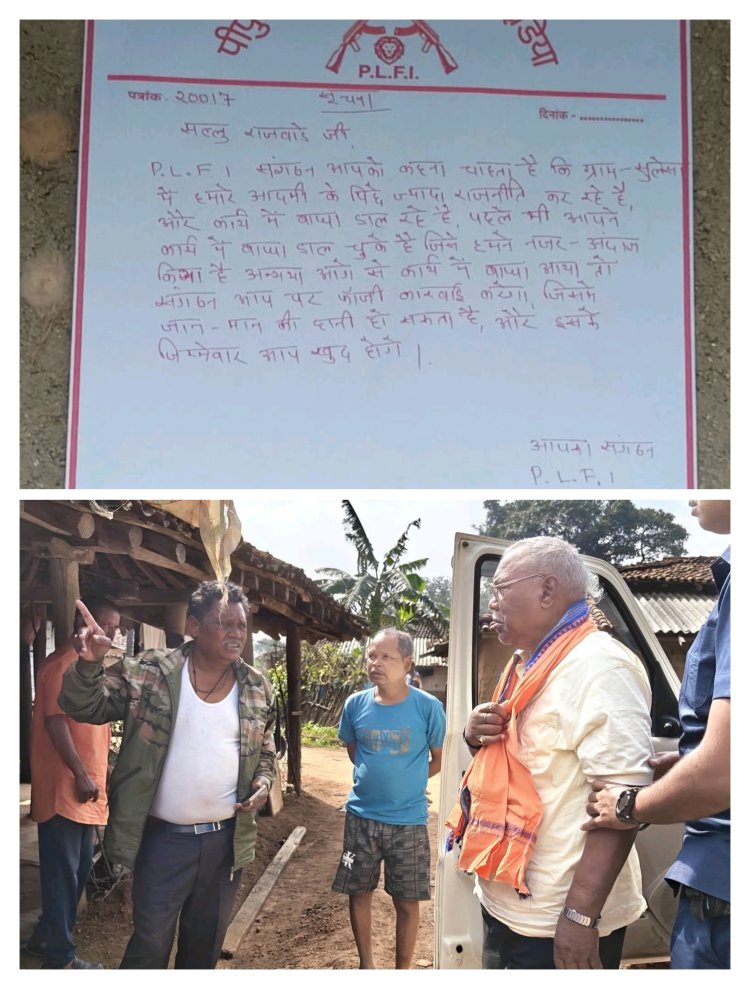 पीपु
डिया
P.L.F.I.
पत्रांक - 20017
सूचना
दिनांक - ................
सल्लु राजवाडे जी,
P.L.F.I संगठन आपको कहना चाहता है कि ग्राम - सुलेसा
में हमारे आदमी के पिछे ज्यादा राजनीति कर रहे है,
और कार्य में बाधा डाल रहे है, पहले भी आपने
कार्य में बाधा डाल चुके है जिसे हमने नजर-अंदाज
किया है अन्यथा आगे से कार्य में बाधा आया तो
संगठन आप पर फौजी कारवाई करेगा, जिसमे
जान-मान की हानी हो सकता है, और इसके
जिम्मेवार आप खुद होंगे।
आपका संगठन
P.L.F.I